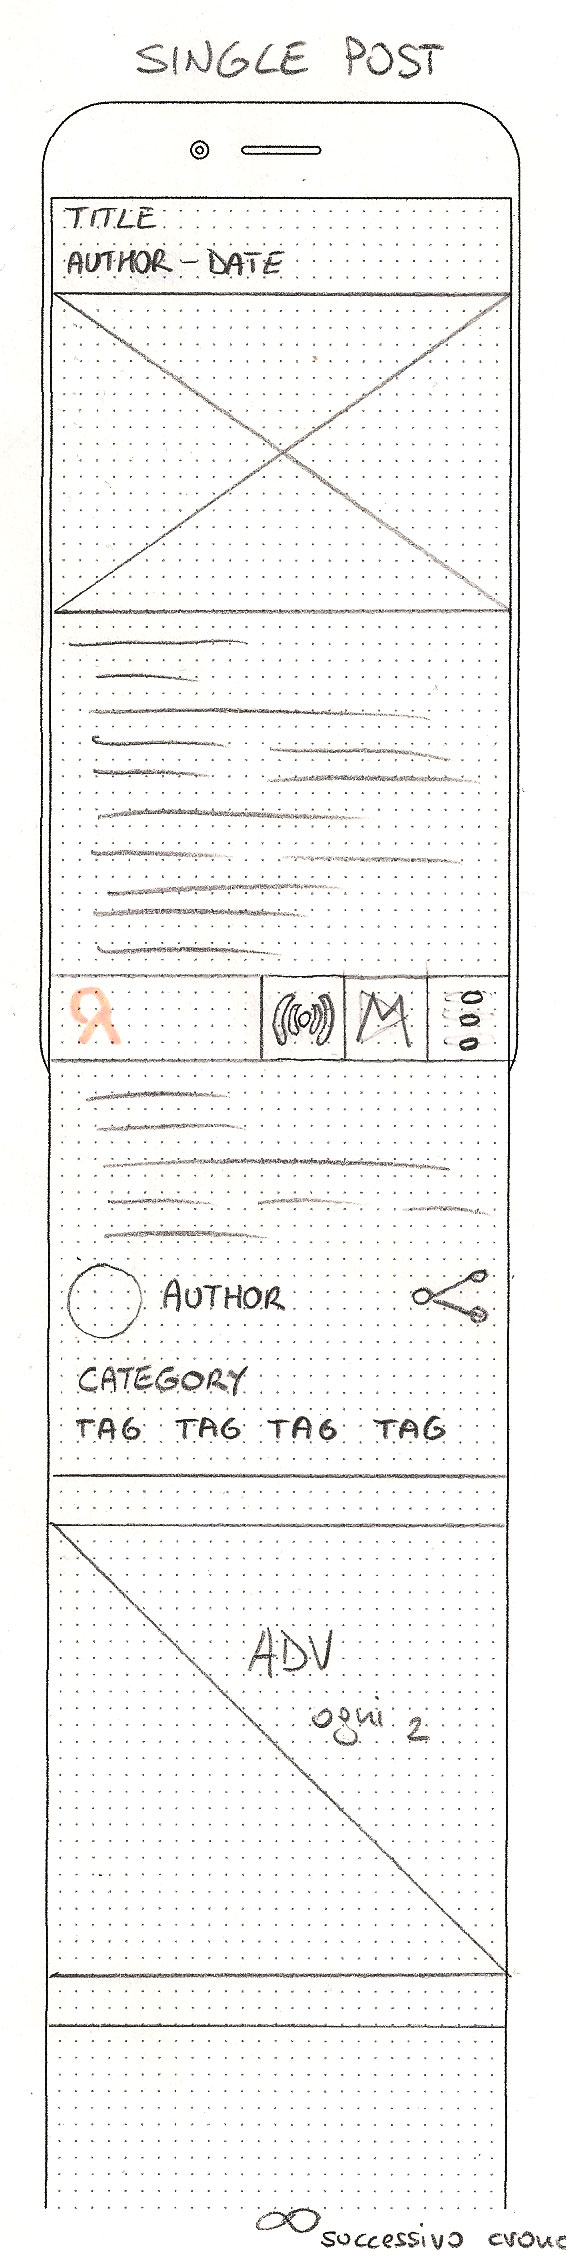 SINGLE POST
TITLE
AUTHOR - DATE
M
AUTHOR
CATEGORY
TAG TAG TAG TAG
ADV
ogni 2
∞
successivo